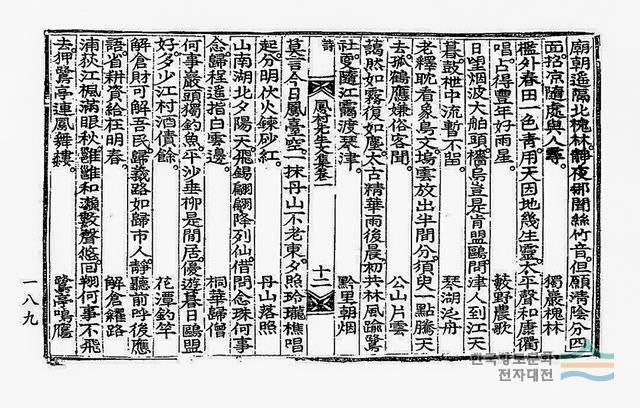 廟朝遙隔北槐林靜夜那聞絲竹音但願清陰分四
面招凉隨處與人專 獨嚴槐林
檻外春田一色青用天因地幾生靈太平聲和康衢
唱占得豊年好雨星 藪野農歌
日望烟波大舶頭檣烏豈是肯盟鷗問津人到江天
暮鼓枻中流暫不留 琴湖之舟
老釋耽看象馬文塢雲放出半間分須臾一點騰天
去孤鶴應嫌俗客聞 公山片雲
藹然如霧復如塵太古精華雨後晨初共林風踰鷲
社更隨江靄渡琹津 黔里朝烟
詩 鳳村先生文集卷一 十二
莫言今日鳳臺空一抹丹山不老東夕照玲瓏樵唱
起分明伏火鍊砂紅 丹山落照
山南湖北夕陽天飛錫翩翩降列仙借問念珠何事
念歸程遙指白雲邊 桐華歸僧
何事嚴頭獨釣魚平沙垂柳是閒居優遊暮日鷗盟
好多少江村酒債餘 花潭釣竿
解倉財可解吾民歸義路如歸市人靜聽前呼後應
語省耕資給在明春 解倉糶路
浦荻江楓滿眼秋雝雝和瀨數聲悠回翔何事不飛
去押鷺亭連鳳舞樓 鷺亭鳴雁
一八九
한국향토문화
전자대전